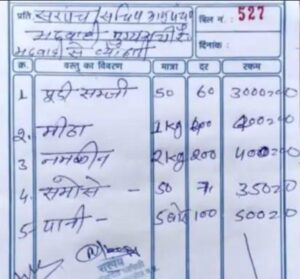 प्रति, सरपंच/सचिव ग्राम पंचा
बिल नं. : 527
दिनांक :
से ब्यौहारी
क्र. वस्तु का विवरण मात्रा दर रकम
1 पूडी सब्जी 50 60 3000=00
2. मीठा 1 kg 400 400=00
3 नमकीन 2 kg 200 400=00
4. समोसे - 50 7 350=00
5 पानी - 100 500=00
सरपंच